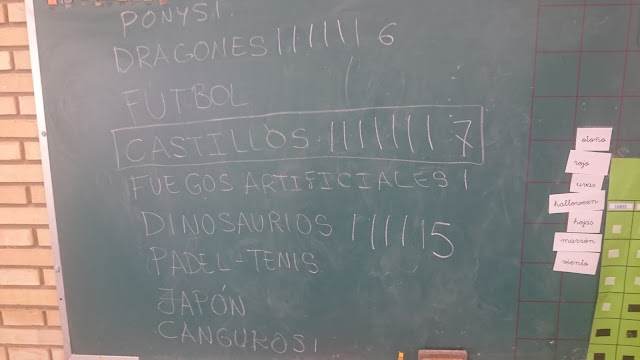 PONYS I
DRAGONES I I I I I I 6
FÚTBOL
CASTILLOS I I I I I I I 7
FUEGOS ARTIFICIALES I
DINOSAURIOS I I I I I 5
PADEL-TENIS
JAPÓN
CANGUROS I
otoño
rojo
uvas
halloween
hojas
marrón
viento